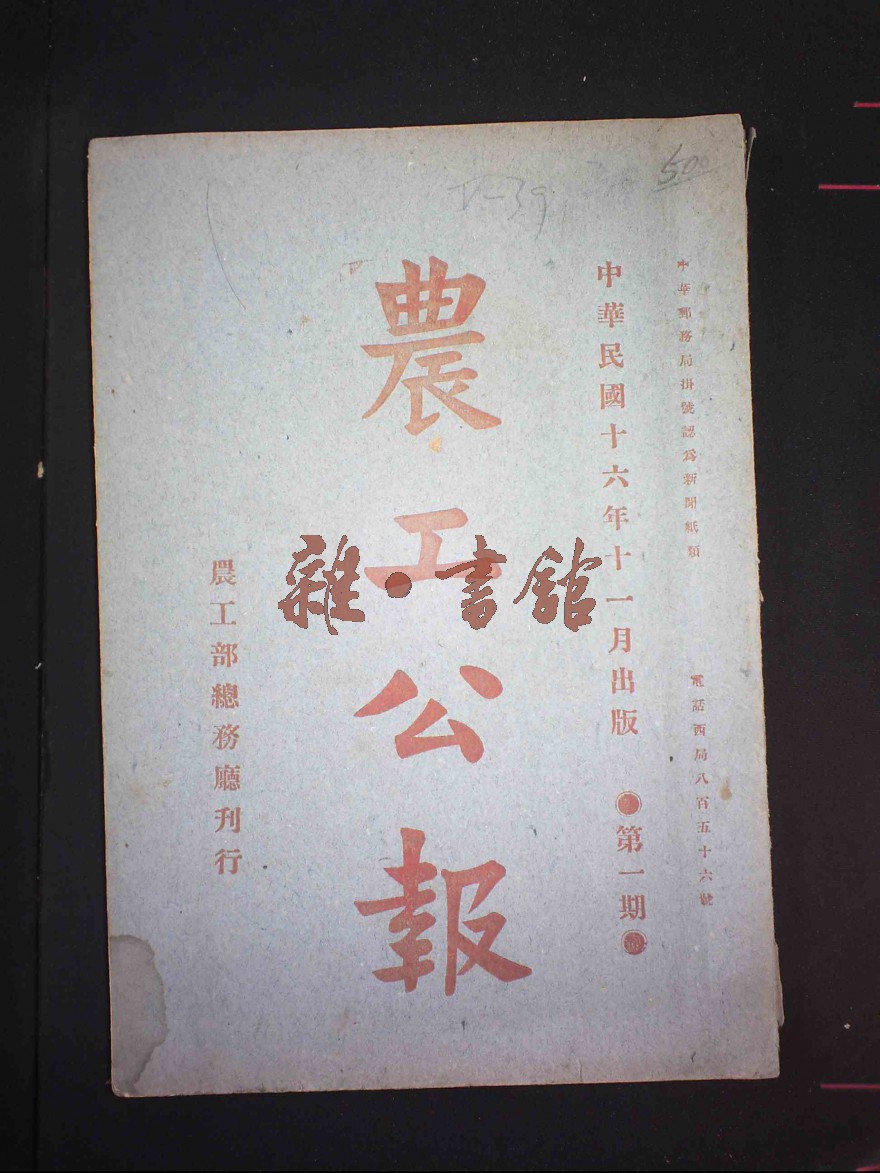 中華郵務局掛號認爲新聞紙類
電話西局八百五十六號
中華民國十六年十一月出版
第一期
農工公報
農工部總務廳刊行
雜·書館
V-39
500